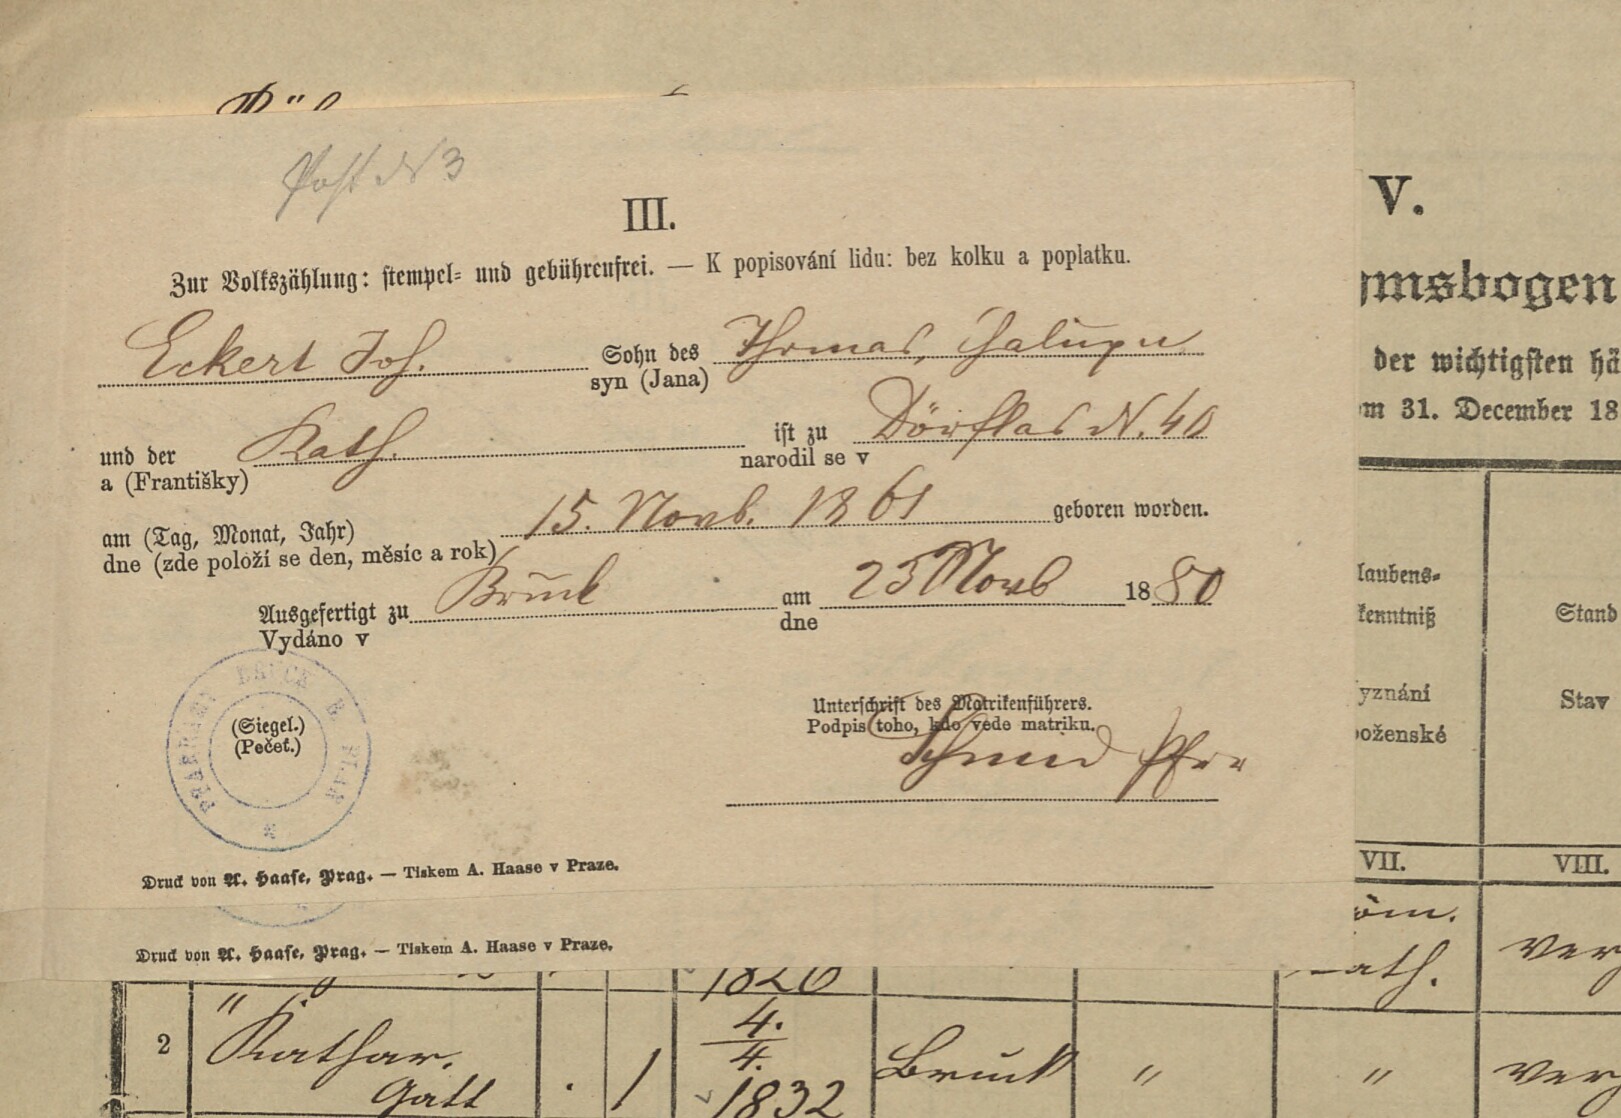 Post N 3
III.
Zur Volkszählung: stempel- und gebührenfrei. — K popisování lidu: bez kolku a poplatku.
Eckert Joh. Sohn des Thomas,
syn (Jana)
und der Kath. ist zu Dörflas N. 40
a (Františky) narodil se v
am (Tag, Monat, Jahr) 15. Novb. 1861 geboren worden.
dne (zde položí se den, měsíc a rok)
Ausgefertigt zu Bruck am 25 Novb 1880
Vydáno v dne
PFARRAMT BRUCK B. PLAN
(Siegel.)
(Pečeť.)
Unterschrift des Matrikenführers.
Podpis toho, kdo vede matriku.
Schmid Pfr
Druck von A. Haase, Prag. — Tiskem A. Haase v Praze.
Druck von A. Haase, Prag. — Tiskem A. Haase v Praze.
V.
msbogen
der wichtigsten hä
m 31. December 18
laubens-
kenntniß
Stand
yznání
oženské
Stav
VII. VIII.
öm.
kath. ver
1826
2 " Kathar. . 1 4. Bruck " " ver
4.
Gatt 1832